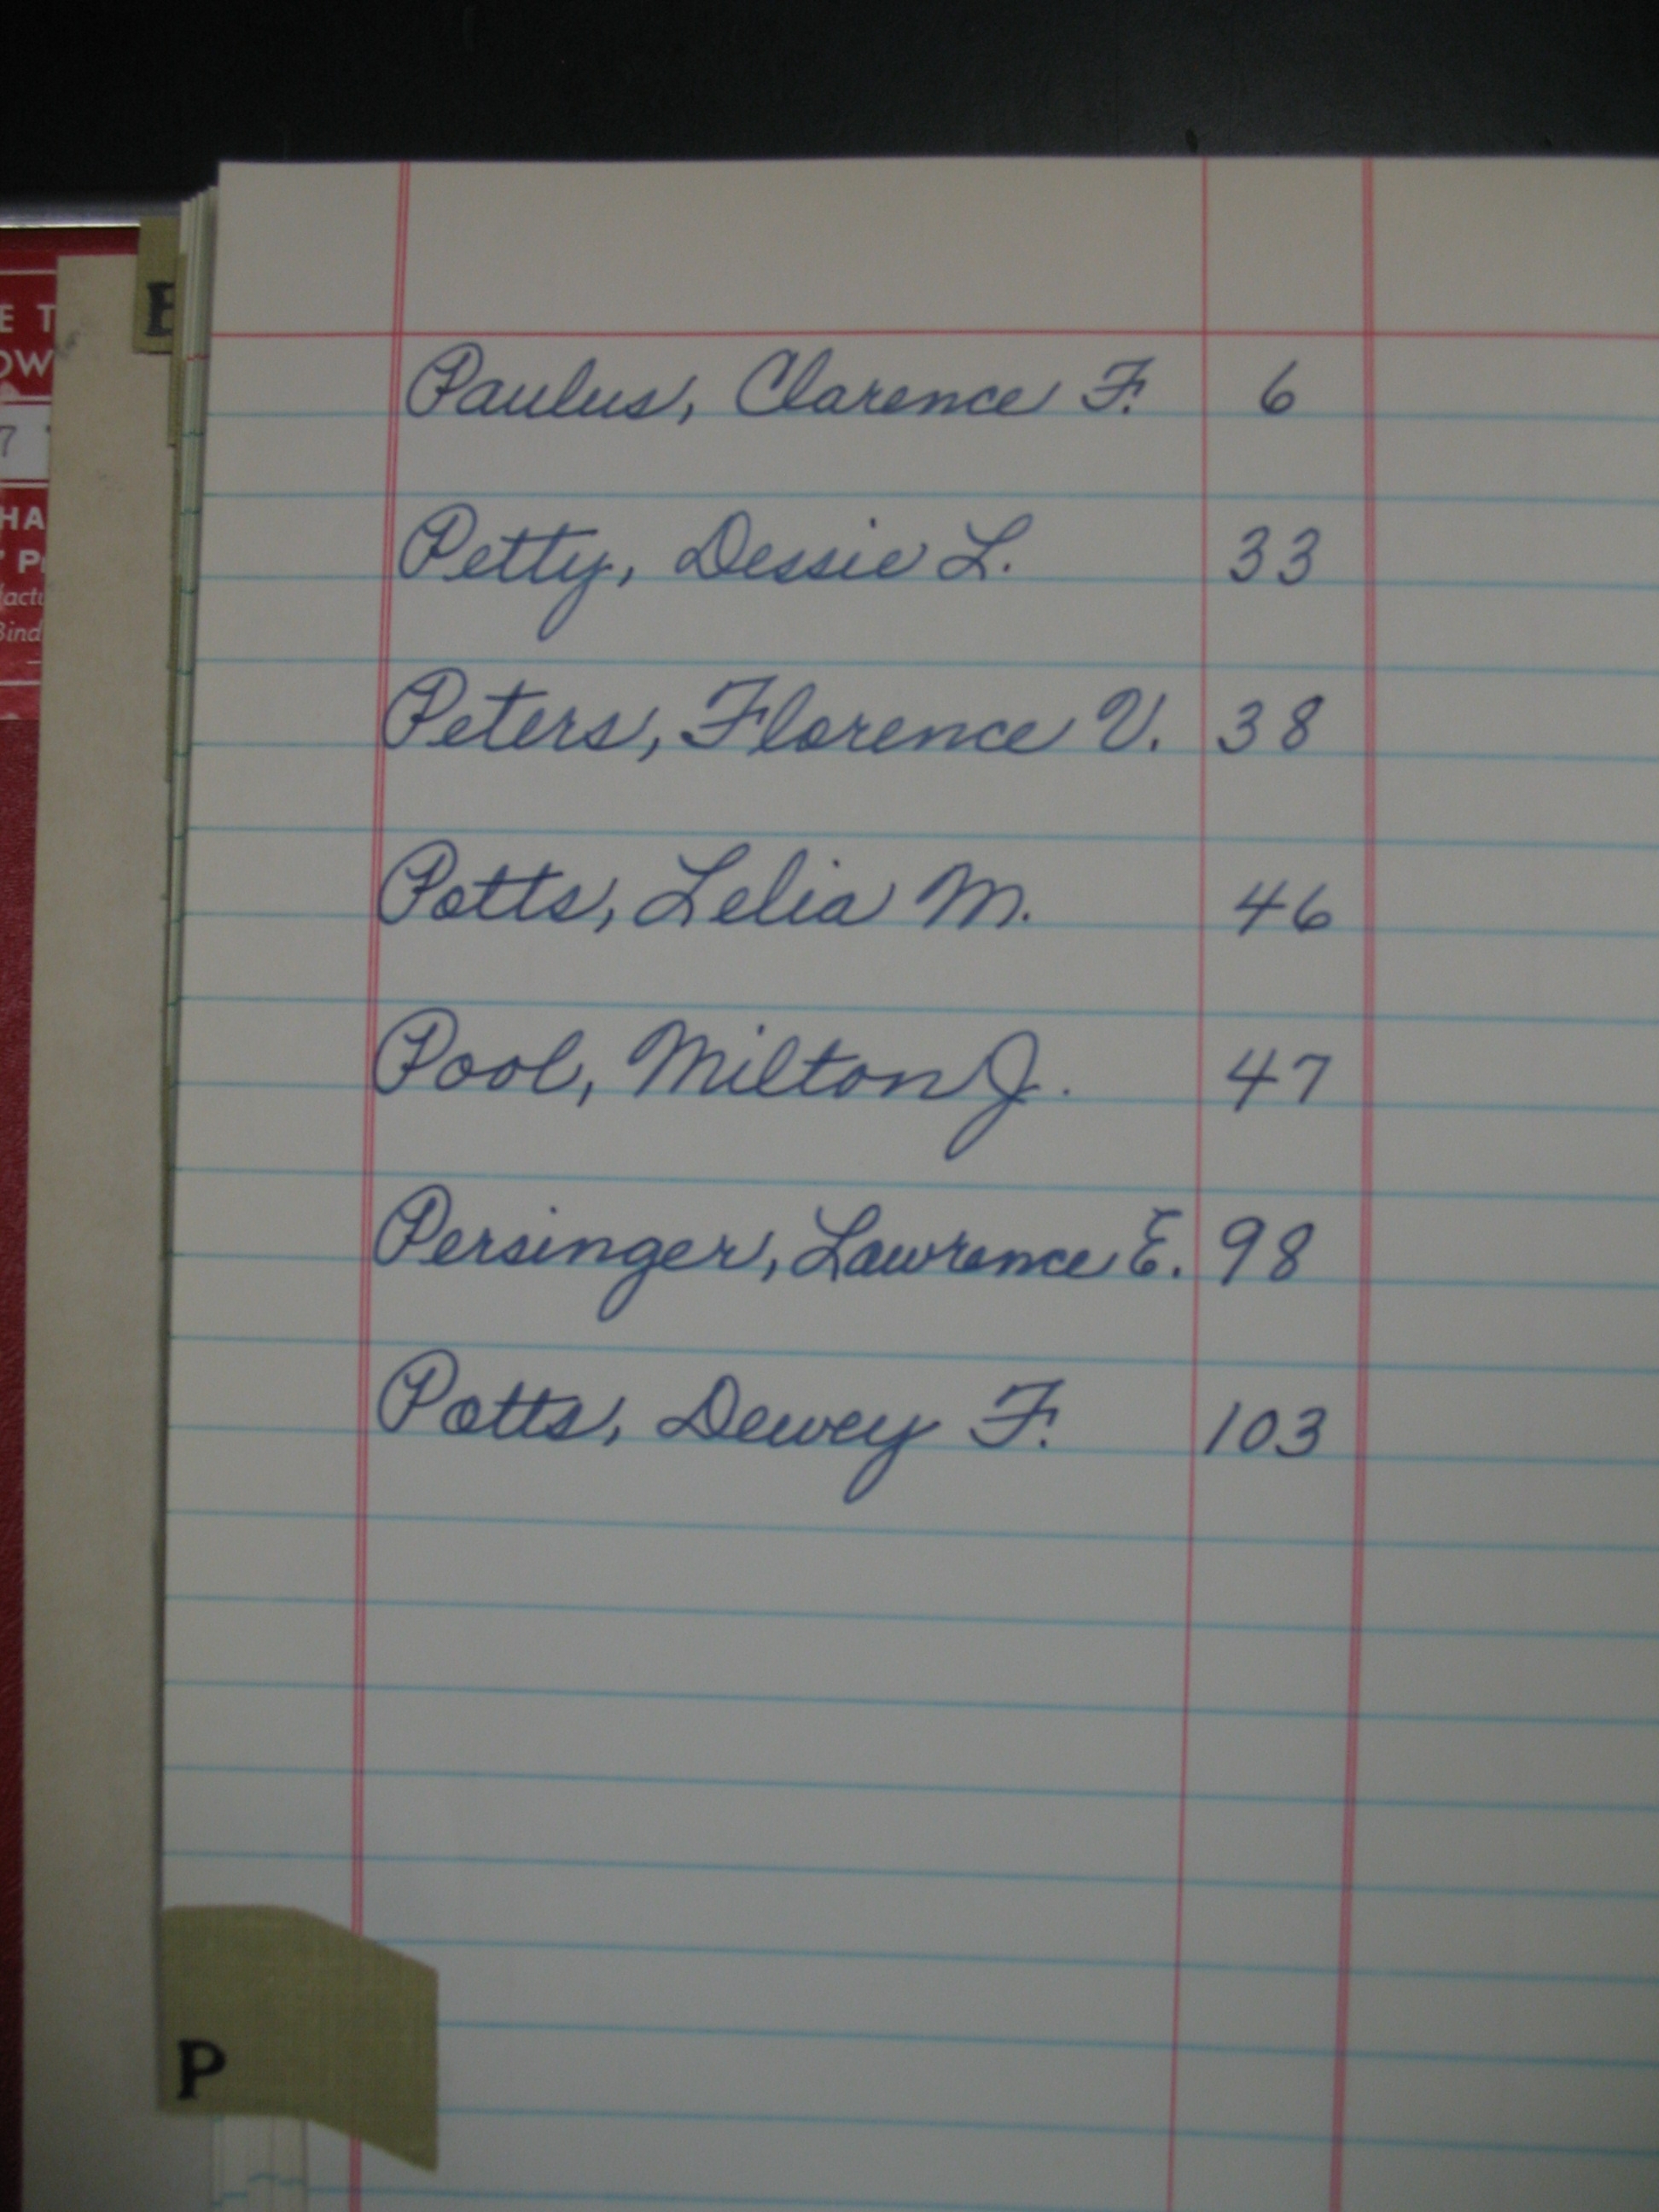 E T
OW
7
HA
P
Bind
E
Paulus, Clarence F. 6
Petty, Dessie L. 33
Peters, Florence V. 38
Potts, Lelia M. 46
Pool, Milton J. 47
Persinger, Lawrence E. 98
Potts, Dewey F. 103
P